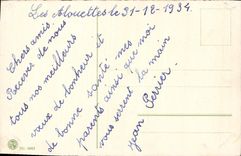 Les Alouettes le 31-12-1934.
Chers amis
Recevez de nous
tous nos meilleurs
vœux de bonheur et
de bonne santé mes
parents ainsi que moi
vous serrent la main
Jean Perrier